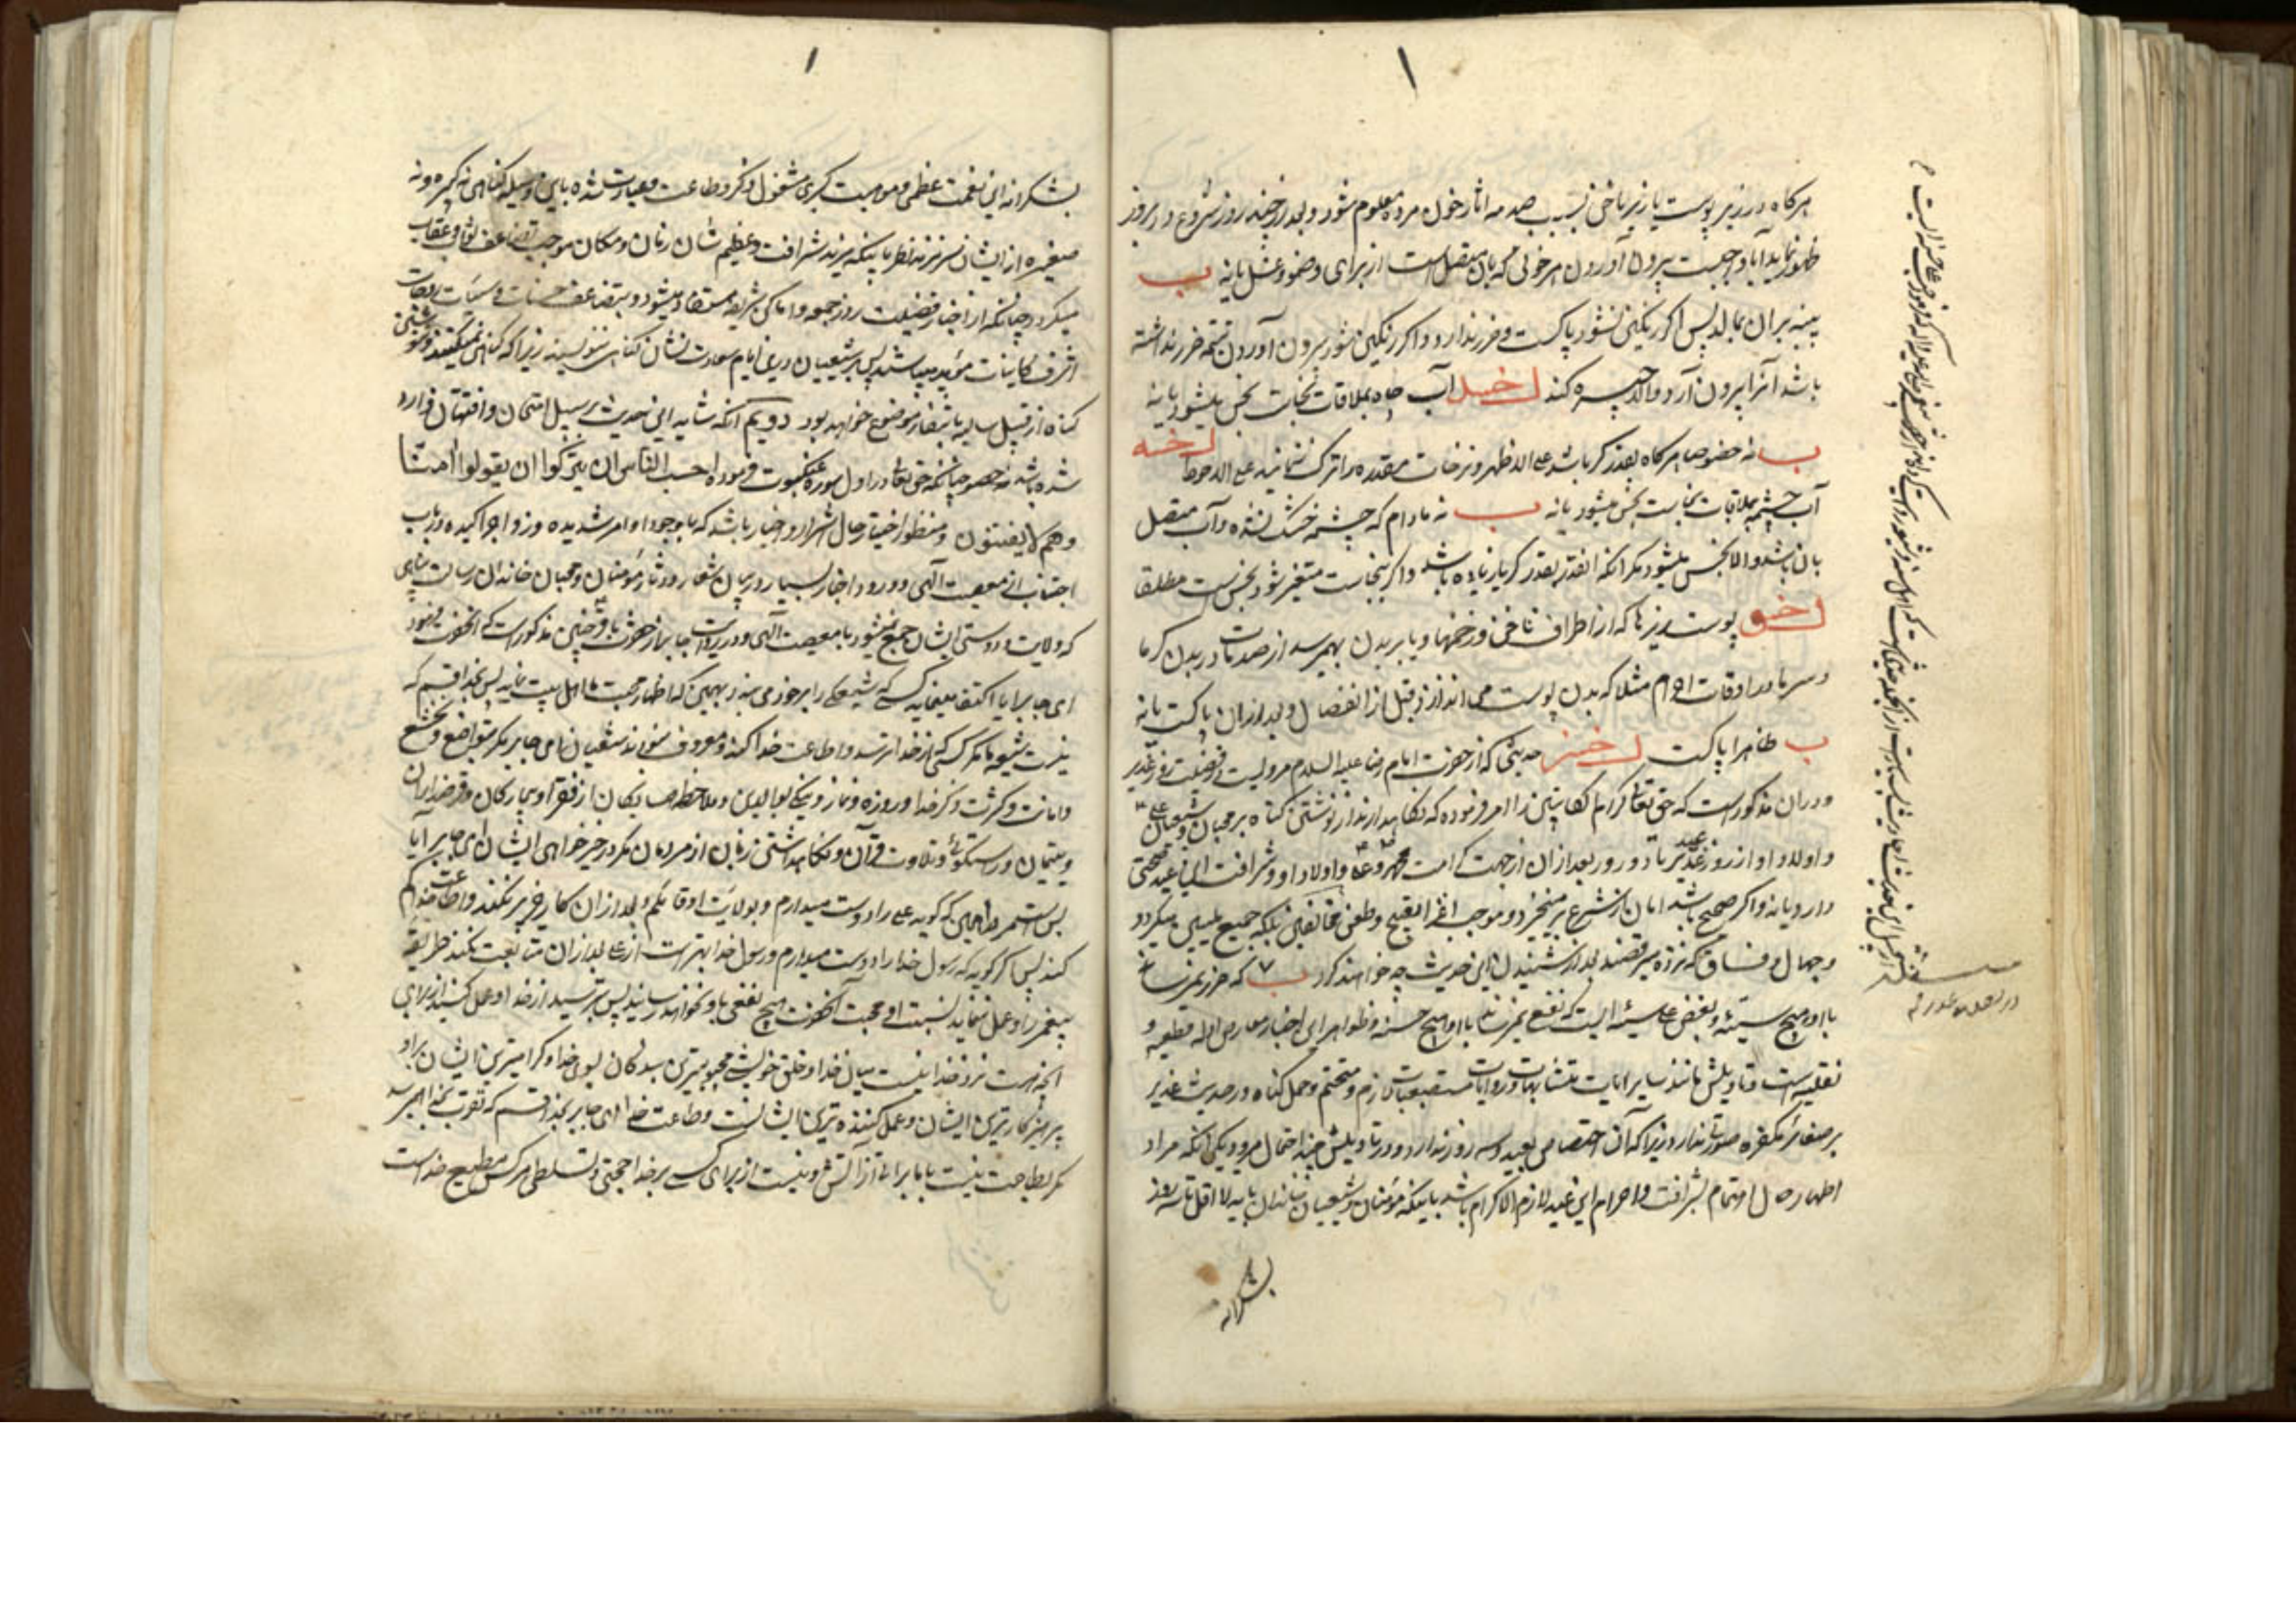 ۱
هرکاه در زیر پوست یا زیر ناخن بسبب صدمه اثار خون مرده معلوم شود و بعد از چند روز شروع در بروز
ظهور نماید آیا واجبست بیرون آوردن هر خونی که بان متصل است از برای وضو و غسل یا نه ب
پنبه بران بمالد پس اکر رنکین نشود پاکست و ضرر ندارد و اکر رنکین شود بیرون آوردن تتمه ضرر نداشته
باشد آنرا بیرون آرد والا جبیره کند آب چاه بملاقات نجاست نجس میشود یا نه
ب نه خصوصا هرکاه بقدر کر باشد علی الاظهر و نزحات مقدره را ترک ننمایند علی الاحوط
آب چشمه بملاقات نجاست نجس میشود یا نه ب نه مادام که چشمه خشک نشده و آب متصل
بان باشد والا نجس میشود مکر انکه انقدر بقدر کر یا زیاده باشد و اکر بنجاست متغیر شود نجس است مطلقا
پوست ریزها که از اطراف ناخن و زخمها و یا بر بدن بهمرسد از صدمات در بدن کرما
و سرما در اوقات احرام مثلا که بدن پوست می اندازد قبل از انفصال و بعد از ان پاکست یا نه
ب ظاهرا پاکست حدیثی که از حضرت امام رضا علیه السلام مرویست در فضیلت روز غدیر
و دران مذکور است که حق تعالی کرام الکاتبین را امر فرموده که نکاهدارند از نوشتن کناه بر محبان و شیعیان علی
و اولاد او از روز عید غدیر تا دو روز بعد از ان از جهت کرامت محمد و علی و اولاد او و شرافت این عید صحتی
دارد یا نه و اکر صحیح باشد امان از شرع بر میخیزد و موجب اغرا بقبیح و طعن مخالفین بلکه جمیع ملیین میکردد
و جهال و فساق که نزده میرقصند بعد از شنیدن این حدیث چه خواهند کرد ب که ضرر نمیرساند
با او هیچ سیئه و بغض علی سیئه ایست که نفع نمیرساند با او هیچ حسنه و ظواهر این اخبار معارض ادله قطعیه و
نقلیه است و تاویلش مانند سایر ایات متشابهات و روایات مستصعبات لازم و متحتم و حمل کناه در حدیث غدیر
بر صغائر مکفره صورت ندارد زیرا که آن اختصاصی بعید و سه روز ندارد و در تاویلش چند احتمال میرود یکی انکه مراد
اظهار حال اهتمام بشرافت و احترام این عید لازم الاکرام باشد باینکه مؤمنان و شیعیان خاندان باید لا اقل تا سه روز
بشکرانه
۱
بشکرانه این نعمت عظمی و موهبت کبری مشغول ذکر و طاعت و عبادت شده باین وسیله کناهی نه کبیره و نه
صغیره از ایشان سر نزند نظر باینکه مزید شرافت و عظیم شان زمان و مکان موجب تضاعف ثواب و عقاب
میکردد چنانکه از اخبار فضیلت روز جمعه و اماکن شریفه مستفاد میشود و بتضاعف حسنات و سیئات زوجات
اشرف کاینات مؤید میباشد پس بر شیعیان درین ایام سعادت نشان کناهی ننویسند زیرا که کناهی نمیکنند و ننوشتن
کناه از قبیل سالبه بانتفاء موضوع خواهد بود دویم آنکه شاید این حدیث بر سبیل امتحان و افتتان وارد
شده باشد نه خصوص چنانکه حق تعالی در اول سوره عنکبوت فرموده احسب الناس ان یترکوا ان یقولوا امنا
و هم لا یفتنون و منظور اختبار حال اشرار و اخیار باشد که باوجود اوامر شدیده و زواجر اکیده در باب
اجتناب از معصیت الهی و ورود اخبار بسیار در بیان شعار و دثار مؤمنان و محبان خاندان رسالت پناهی
که ولایت و دوستی ایشان جمع نمیشود با معصیت آلهی و در روایت جابر از حضرت باقر چنین مذکور است که انحضرت فرمود
ای جابر آیا اکتفا مینماید کسی که تشیع را بر خود می بندد بهمین که اظهار محبت ما اهل بیت نماید پس بخدا قسم که
نیست شیعه ما مکر کسی که از خدا ترسد و اطاعت خدا کند و معروف نبودند شیعیان ما ای جابر مکر بتواضع و تخشع
و امانت و کثرت ذکر خدا و روزه و نماز و نیکی بوالدین و ملاحظه همسایکان از فقرا و بیچارکان و قرضداران
و یتیمان و راستکوئی و تلاوت قرآن و نکاهداشتن زبان از مردمان مکر در خیر خواهی ایشان ای جابر آیا
بس است مرد را همین که کوید علی را دوست میدارم و بولایت او قایلم و بعد از ان کار خیر نکند و اطاعت
کند پس اکر کوید که رسول خدا را دوست میدارم و رسول خدا بهتر است از علی بعد از ان متابعت نکند طریقه
پیغمبر را و عمل ننماید بسنت او محبت آنحضرت هیچ نفعی باو نخواهد رسانید پس بترسید از خدا و عمل کنید از برای
آنچه هست نزد خدا نیست میان خدا و خلق خویشی محبوبترین بندکان بسوی خدا و کرامیترین ایشان بر او
پرهیزکارترین ایشان و عمل کننده ترین ایشانست و طاعت خدا ای جابر بخدا قسم که تقرب بخدا بهم نمیرسد
مکر بطاعت نیست با ما براتی از آتش و نیست از برای کسی بر خدا حجتی و تسلطی هرکس مطیع خداست